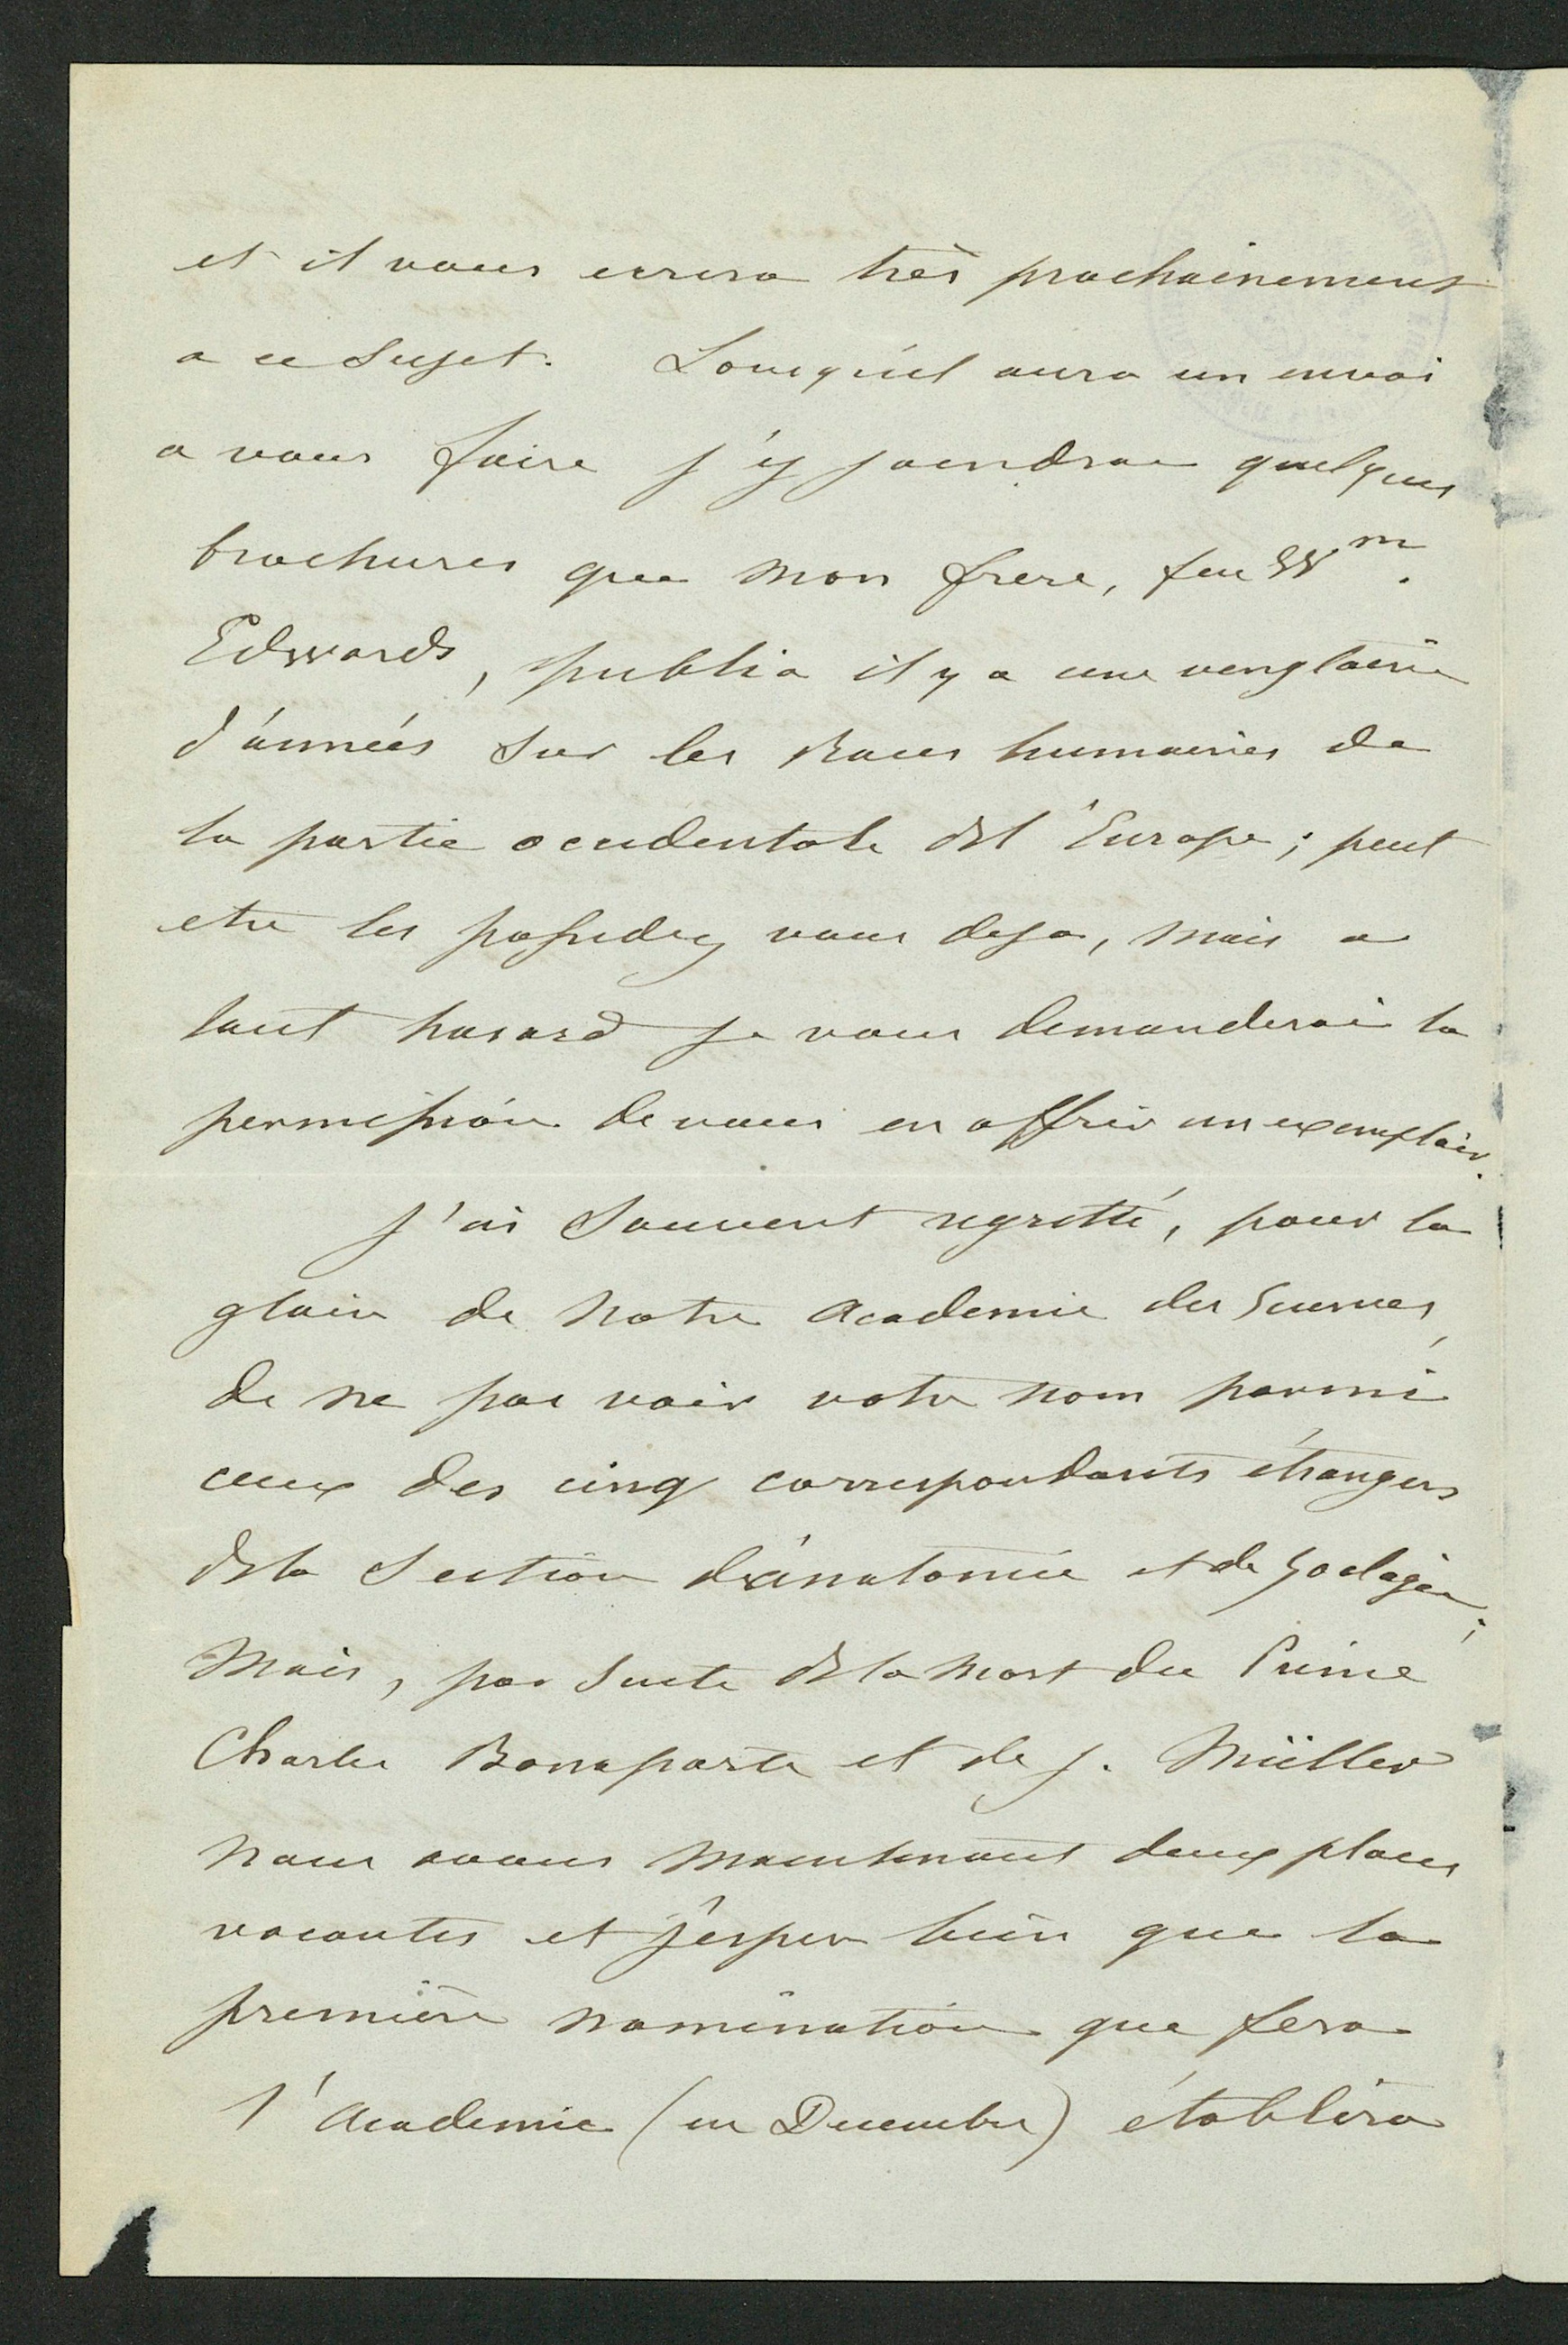 et il vous ecrira très prochainement
a ce sujet. Lorsqu'il aura un envoi
a vous faire j'y joindrai quelques
brochures que mon frere, feu Wm.
Edwards, publia il y a une vingtaine
d'années sur les Races humaines de
la partie occidentale de l'Europe; peut
etre les possedez vous deja, mais a
tout hasard je vous demanderai la
permission de vous en offrir un exemplaire.
J'ai souvent regretté, pour la
gloire de notre Academie des Sciences,
de ne pas voir votre nom parmi
ceux des cinq correspondants étrangers
de la Section d'anatomie et de Zoologie;
Mais, par suite de la mort du Prince
Charles Bonaparte et de J. Müller
nous avons maintenant deux places
vacantes et j'espere bien que la
première nomination que fera
l'Academie (en Decembre) établira